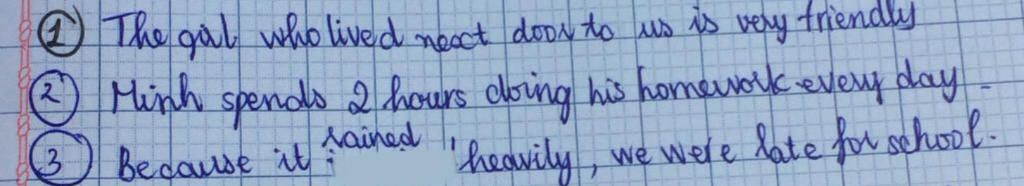 ① The girl who lived next door to us is very friendly
② Minh spends 2 hours doing his homework every day
③ Because it rained heavily, we were late for school.